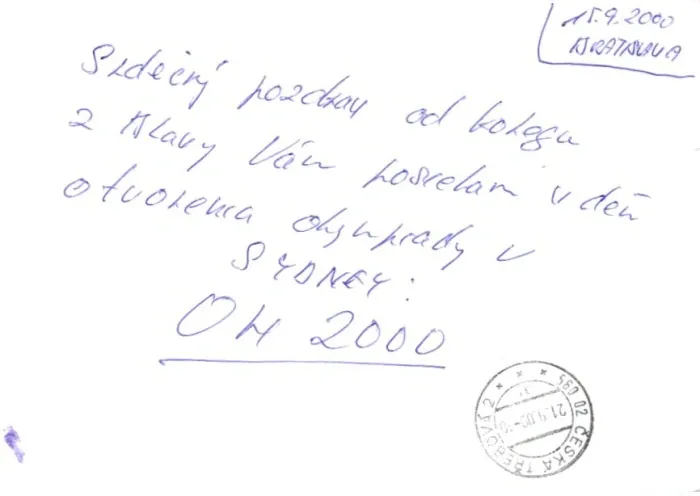 15.9.2000
BRATISLAVA
Srdečný pozdrav od kolegu
z Blavy Vám posielam v deň
otvorenia olympiady v
SYDNEY:
OH 2000
560 02 ČESKÁ TŘEBOVÁ 2
21.9.00-18